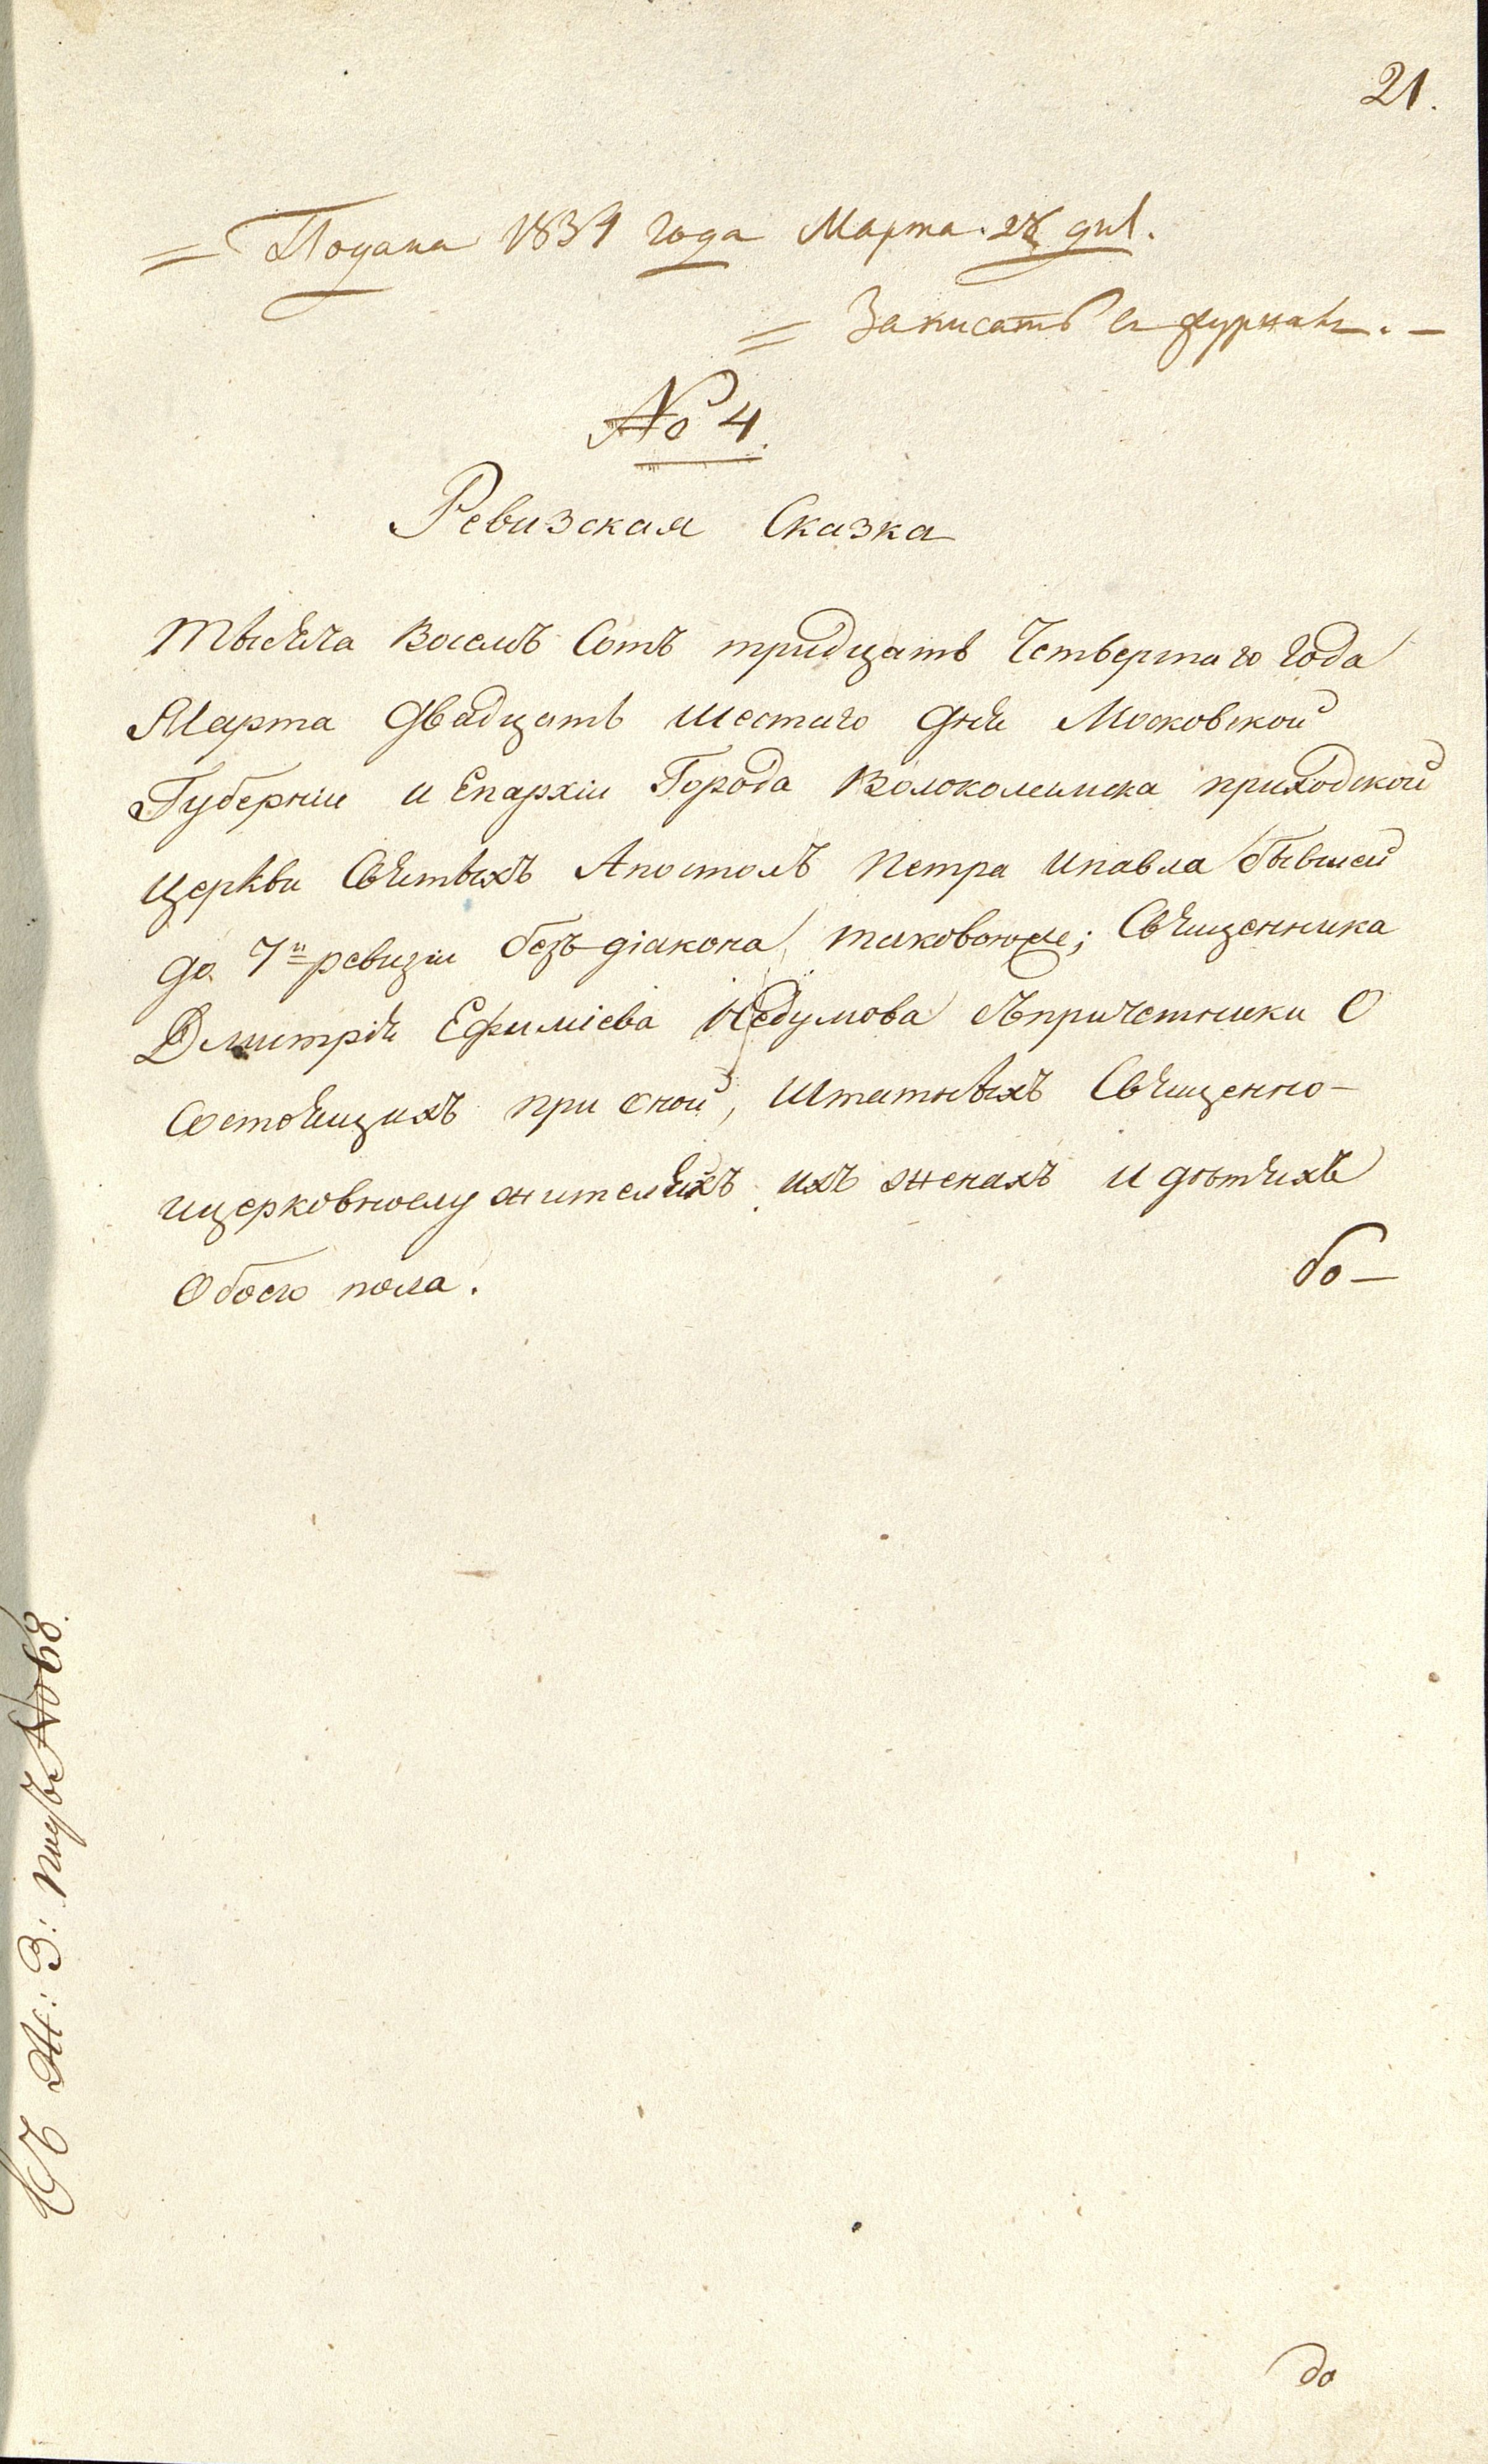 21.
= Подана 1834 года Марта. 28 дня.
= Записать въ журналъ. —
№ 4.
Ревизская Сказка
Тысяча Восемъ Сотъ тридцать Четвертаго года
Марта двадцать шестаго дня Московской
Губерніи и Епархіи Города Волоколамска приходской
церкви Святыхъ Апостолъ Петра ипавла бывшей
до 7й ревизіи безъ діакона, таковоюже; Священника
Дмитрія Ефиміева Недумова съпричетники О
Состоящихъ при оной, Штатныхъ Священно-
ицерковнослужителяхъ ихъ женахъ и дѣтяхъ
Обоего пола.
бо—
Въ Ж: З: подъ №68.
до